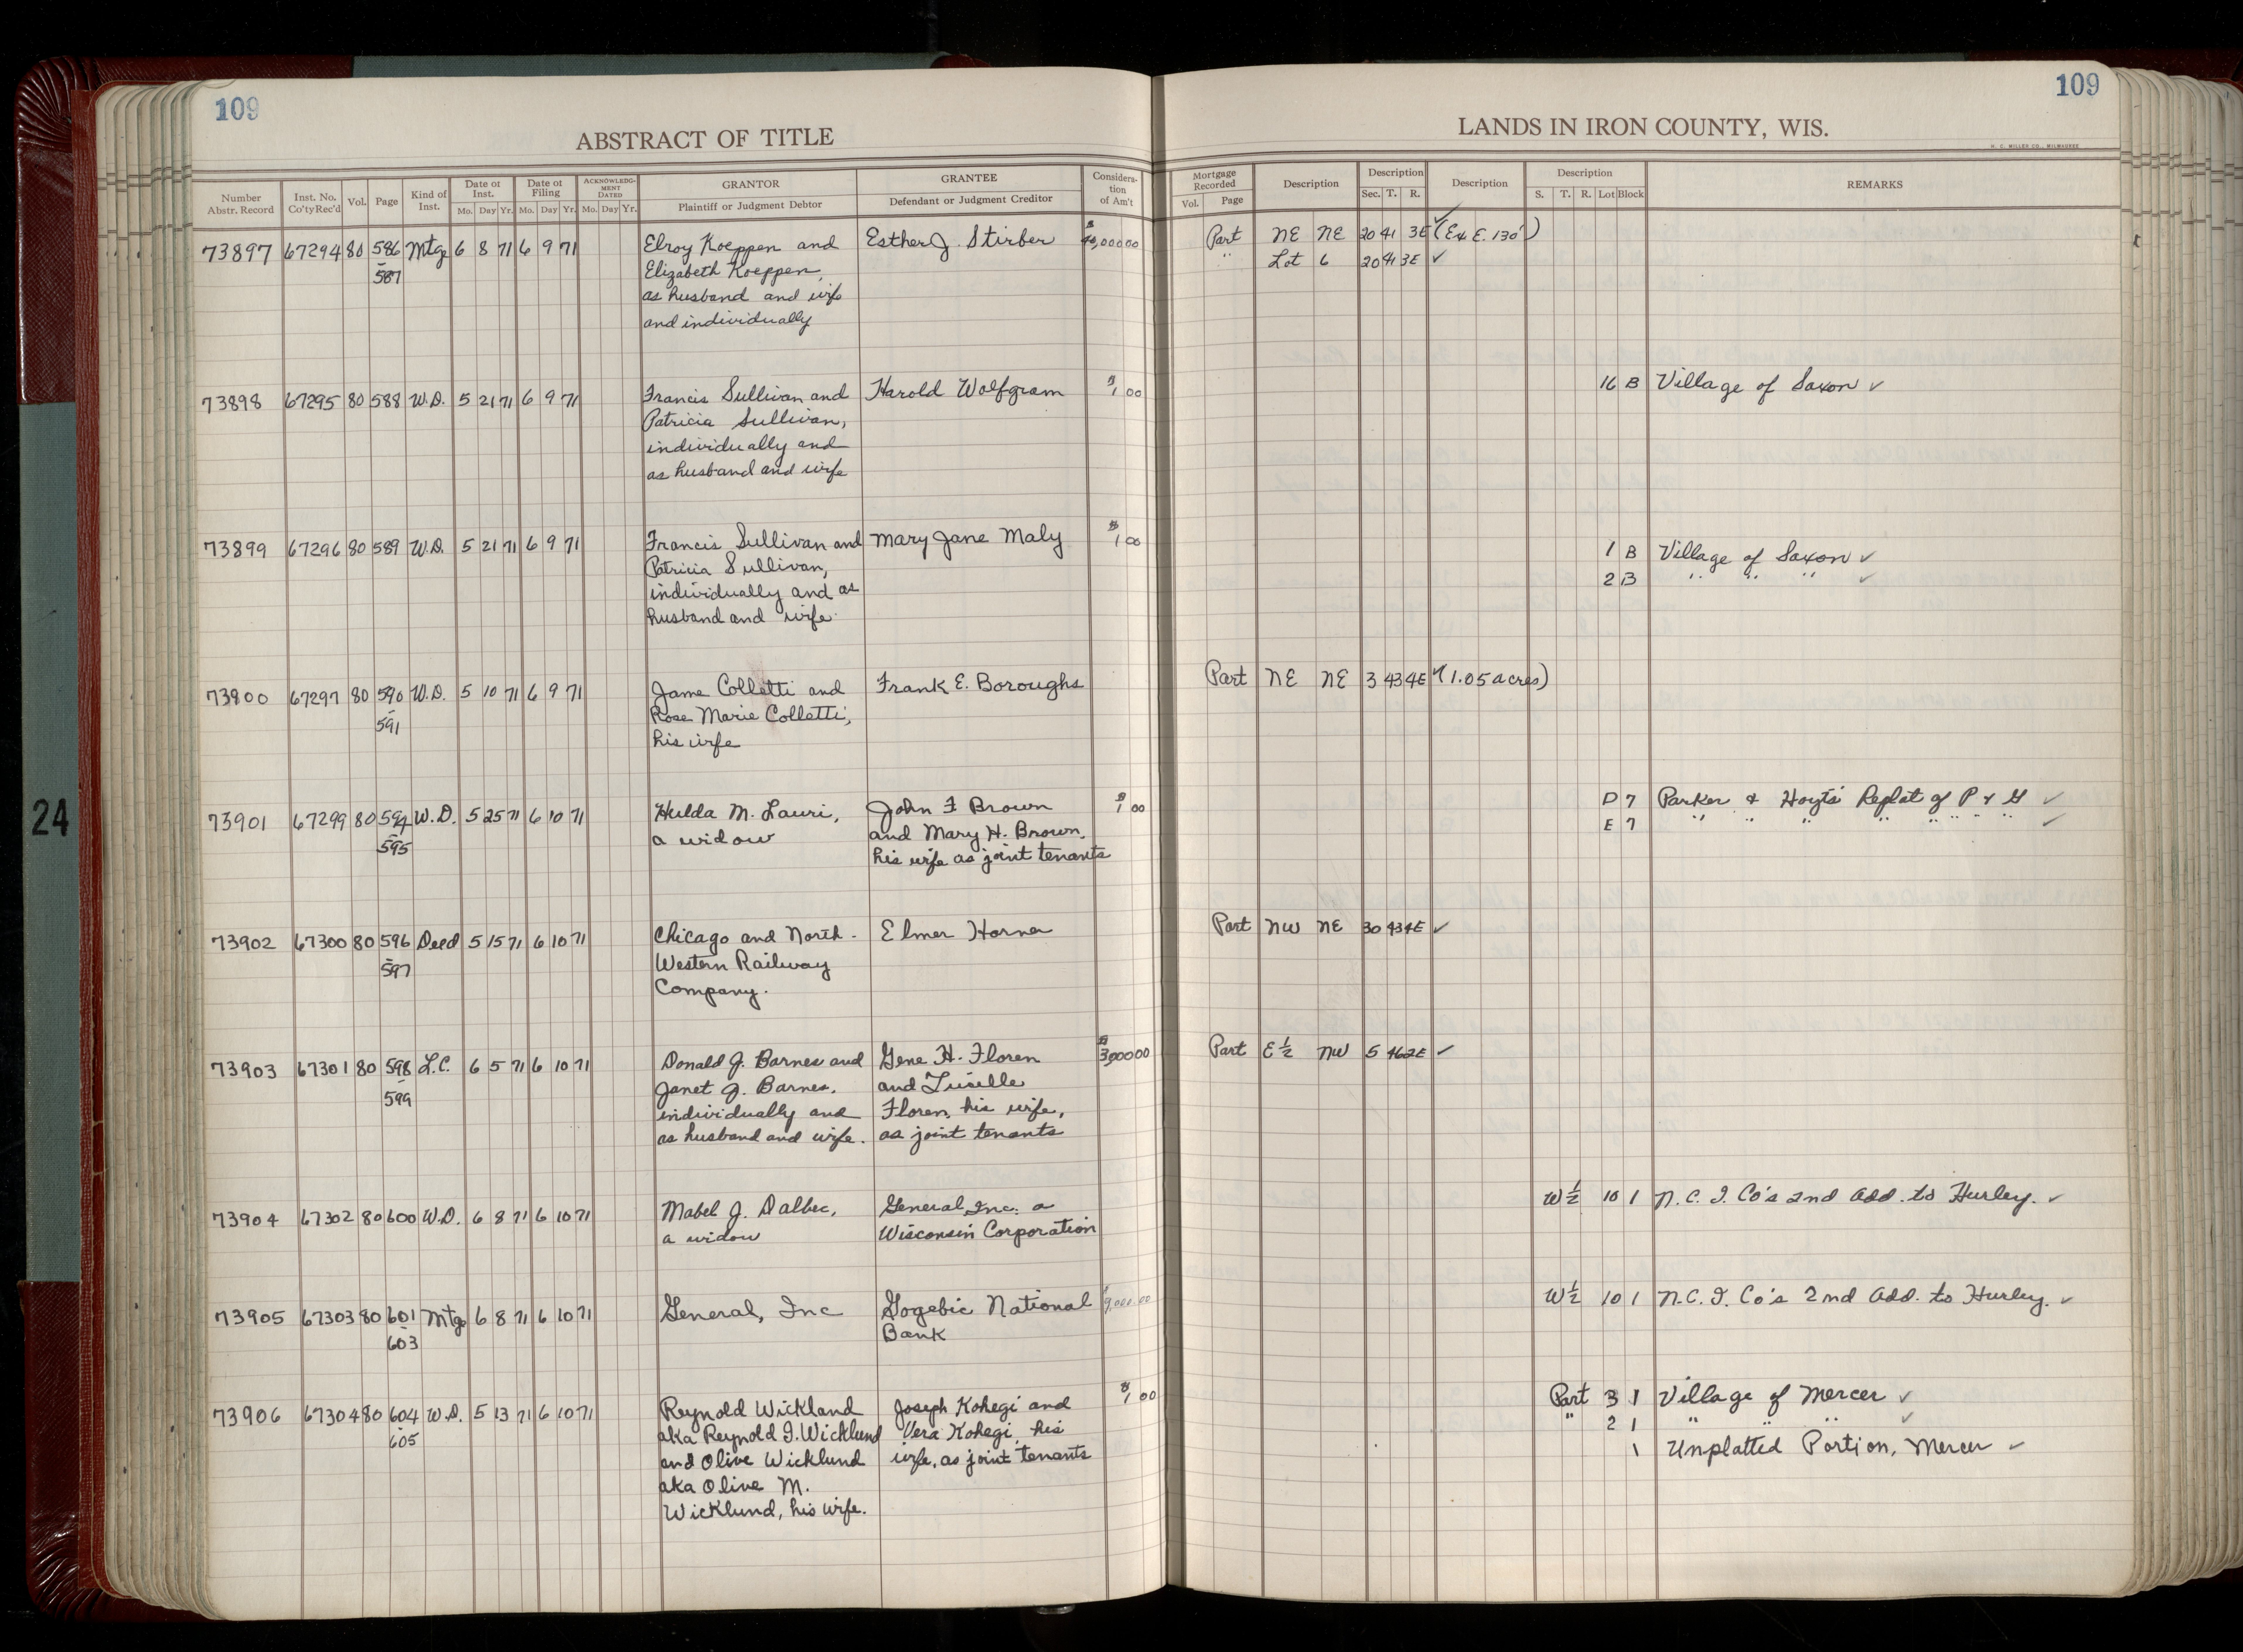 109
ABSTRACT OF TITLE
Number Abstr. Record Inst. No. Co'ty Rec'd Vol. Page Kind of Inst. Date of Inst. Mo. Day Yr. Date of Filing Mo. Day Yr. ACKNOWLEDGMENT DATED Mo. Day Yr. GRANTOR Plaintiff or Judgment Debtor GRANTEE Defendant or Judgment Creditor Consideration of Am't
73897 67294 80 586 Mtg 6 8 71 6 9 71 Elroy Koeppen and Esther J. Stirber
587 Elizabeth Koeppen,
as husband and wife
and individually
73898 67295 80 588 W.D. 5 21 71 6 9 71 Francis Sullivan and Harold Wolfgram $1 00
Patricia Sullivan,
individually and
as husband and wife
73899 67296 80 589 W.D. 5 21 71 6 9 71 Francis Sullivan and Mary Jane Maly $1 00
Patricia Sullivan,
individually and as
husband and wife
73900 67297 80 590 W.D. 5 10 71 6 9 71 Jame Colletti and Frank E. Boroughs
591 Rose Marie Colletti,
his wife
73901 67299 80 594 W.D. 5 25 71 6 10 71 Hulda M. Lauri, John F Brown $1 00
595 a widow and Mary H. Brown,
his wife as joint tenants
73902 67300 80 596 Deed 5 15 71 6 10 71 Chicago and North- Elmer Horne
597 Western Railway
Company.
73903 67301 80 598 L.C. 6 5 71 6 10 71 Donald J. Barnes and Gene H. Floren $3,000 00
599 Janet J. Barnes, and Lucille
individually and Floren, his wife,
as husband and wife. as joint tenants
73904 67302 80 600 W.D. 6 8 71 6 10 71 Mabel J. Dalbec, General, Inc. a
a widow Wisconsin Corporation
73905 67303 80 601 Mtg 6 8 71 6 10 71 General, Inc Gogebic National $9,000.00
603 Bank
73906 67304 80 604 W.D. 5 13 71 6 10 71 Reynold Wickland Joseph Kohegi and $1 00
605 aka Reynold I. Wicklund Vera Kohegi, his
and Olive Wicklund wife, as joint tenants
aka Olive M.
Wicklund, his wife.
109
LANDS IN IRON COUNTY, WIS.
H. C. MILLER CO., MILWAUKEE
Mortgage Recorded Vol. Page Description Description Sec. T. R. Description Description S. T. R. Lot Block REMARKS
Part NE NE 20 41 3E ✓ (Ex E. 130')
" Lot 6 20 41 3E ✓
16 B Village of Saxon ✓
1 B Village of Saxon ✓
2 B " " " ✓
Part NE NE 3 43 4E ✓ (1.05 acres)
D 7 Parker & Hoyts Replat of P & G ✓
E 7 " " " " " " " " ✓
Part NW NE 30 43 4E ✓
Part E ½ NW 5 46 2E ✓
W ½ 10 1 N.C.I. Co's 2nd Add. to Hurley. ✓
W ½ 10 1 N.C.I. Co's 2nd Add. to Hurley. ✓
Part 3 1 Village of Mercer ✓
" 2 1 " " " ✓
1 Unplatted Portion, Mercer ✓
24